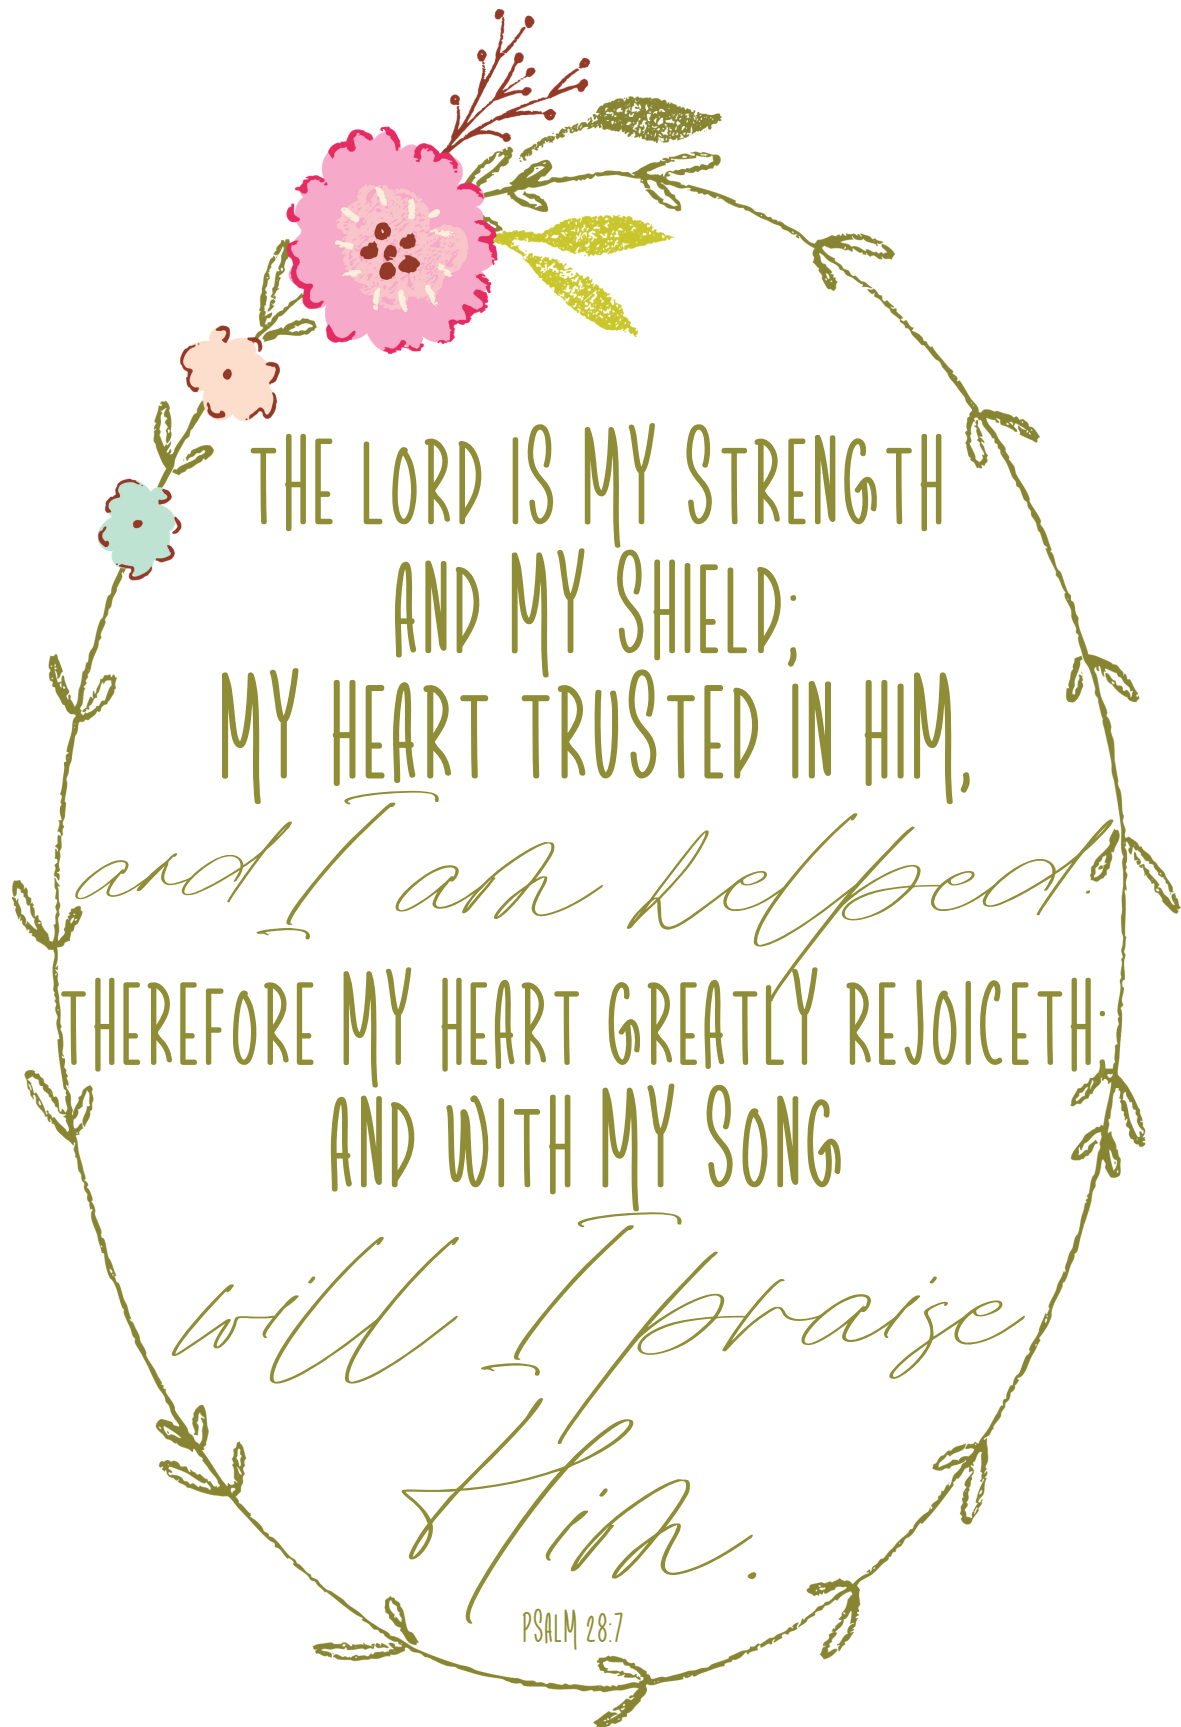 THE LORD IS MY STRENGTH
AND MY SHIELD;
MY HEART TRUSTED IN HIM,
and I am helped:
THEREFORE MY HEART GREATLY REJOICETH;
AND WITH MY SONG
will I praise
Him.
PSALM 28:7